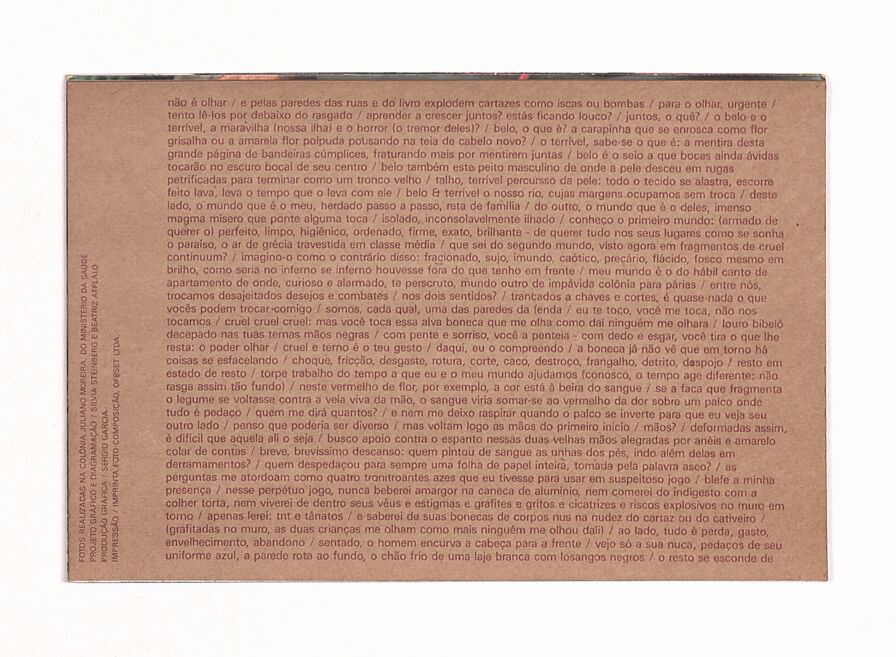 não é olhar / e pelas paredes das ruas e do livro explodem cartazes como iscas ou bombas / para o olhar, urgente /
tento lê-los por debaixo do rasgado / aprender a crescer juntos? estás ficando louco? / juntos, o quê? / o belo e o
terrível, a maravilha (nossa ilha) e o horror (o tremor deles)? / belo, o que é? a carapinha que se enrosca como flor
grisalha ou a amarela flor polpuda pousando na teia de cabelo novo? / o terrível, sabe-se o que é: a mentira desta
grande página de bandeiras cúmplices, fraturando mais por mentirem juntas / belo é o seio a que bocas ainda ávidas
tocarão no escuro bocal de seu centro / belo também este peito masculino de onde a pele desceu em rugas
petrificadas para terminar como um tronco velho / talho, terrível percurso da pele: todo o tecido se alastra, escorre
feito lava, leva o tempo que o leva com ele / belo & terrível o nosso rio, cujas margens ocupamos sem troca / deste
lado, o mundo que é o meu, herdado passo a passo, rota de família / do outro, o mundo que é o deles, imenso
magma mísero que ponte alguma toca / isolado, inconsolavelmente ilhado / conheço o primeiro mundo: (armado de
querer o) perfeito, limpo, higiênico, ordenado, firme, exato, brilhante - de querer tudo nos seus lugares como se sonha
o paraíso, o ar de grécia travestida em classe média / que sei do segundo mundo, visto agora em fragmentos de cruel
continuum? / imagino-o como o contrário disso: fracionado, sujo, imundo, caótico, precário, flácido, fosco mesmo em
brilho, como seria no inferno se inferno houvesse fora do que tenho em frente / meu mundo é o do hábil canto de
apartamento de onde, curioso e alarmado, te perscruto, mundo outro de impávida colônia para párias / entre nós,
trocamos desajeitados desejos e combates / nos dois sentidos? / trancados a chaves e cortes, é quase nada o que
vocês podem trocar-comigo / somos, cada qual, uma das paredes da fenda / eu te toco, você me toca, não nos
tocamos / cruel cruel cruel: mas você toca essa alva boneca que me olha como daí ninguém me olhara / louro bibelô
decepado nas tuas ternas mãos negras / com pente e sorriso, você a penteia - com dedo e esgar, você tira o que lhe
resta: o poder olhar / cruel e terno é o teu gesto / daqui, eu o compreendo / a boneca já não vê que em torno há
coisas se esfacelando / choque, fricção, desgaste, rotura, corte, caco, destroço, frangalho, detrito, despojo / resto em
estado de resto / torpe trabalho do tempo a que eu e o meu mundo ajudamos (conosco, o tempo age diferente: não
rasga assim tão fundo) / neste vermelho de flor, por exemplo, a cor está à beira do sangue / se a faca que fragmenta
o legume se voltasse contra a veia viva da mão, o sangue viria somar-se ao vermelho da dor sobre um palco onde
tudo é pedaço / quem me dirá quantos? / e nem me deixo raspirar quando o palco se inverte para que eu veja seu
outro lado / penso que poderia ser diverso / mas voltam logo as mãos do primeiro início / mãos? / deformadas assim,
é difícil que aquela ali o seja / busco apoio contra o espanto nessas duas velhas mãos alegradas por anéis e amarelo
colar de contas / breve, brevíssimo descanso: quem pintou de sangue as unhas dos pés, indo além delas em
derramamentos? / quem despedaçou para sempre uma folha de papel inteira, tomada pela palavra asco? / as
perguntas me atordoam como quatro tronitroantes azes que eu tivesse para usar em suspeitoso jogo / blefe a minha
presença / nesse perpétuo jogo, nunca beberei amargor na caneca de alumínio, nem comerei do indigesto com a
colher torta, nem viverei de dentro seus véus e estigmas e grafites e gritos e cicatrizes e riscos explosivos no muro em
torno / apenas lerei: tnt e tânatos / e saberei de suas bonecas de corpos nus na nudez do cartaz ou do cativeiro /
(grafitadas no muro, as duas crianças me olham como mais ninguém me olhou dali) / ao lado, tudo é perda, gasto,
envelhecimento, abandono / sentado, o homem encurva a cabeça para a frente / vejo só a sua nuca, pedaços de seu
uniforme azul, a parede rota ao fundo, o chão frio de uma laje branca com losangos negros / o resto se esconde de
FOTOS REALIZADAS NA COLÔNIA JULIANO MOREIRA, DO MINISTÉRIO DA SAÚDE
PROJETO GRÁFICO E DIAGRAMAÇÃO / SILVIA STEINBERG E BEATRIZ AFFLALO
PRODUÇÃO GRÁFICA / SERGIO GARCIA
IMPRESSÃO / IMPRINTA FOTO-COMPOSIÇÃO, OFFSET LTDA.